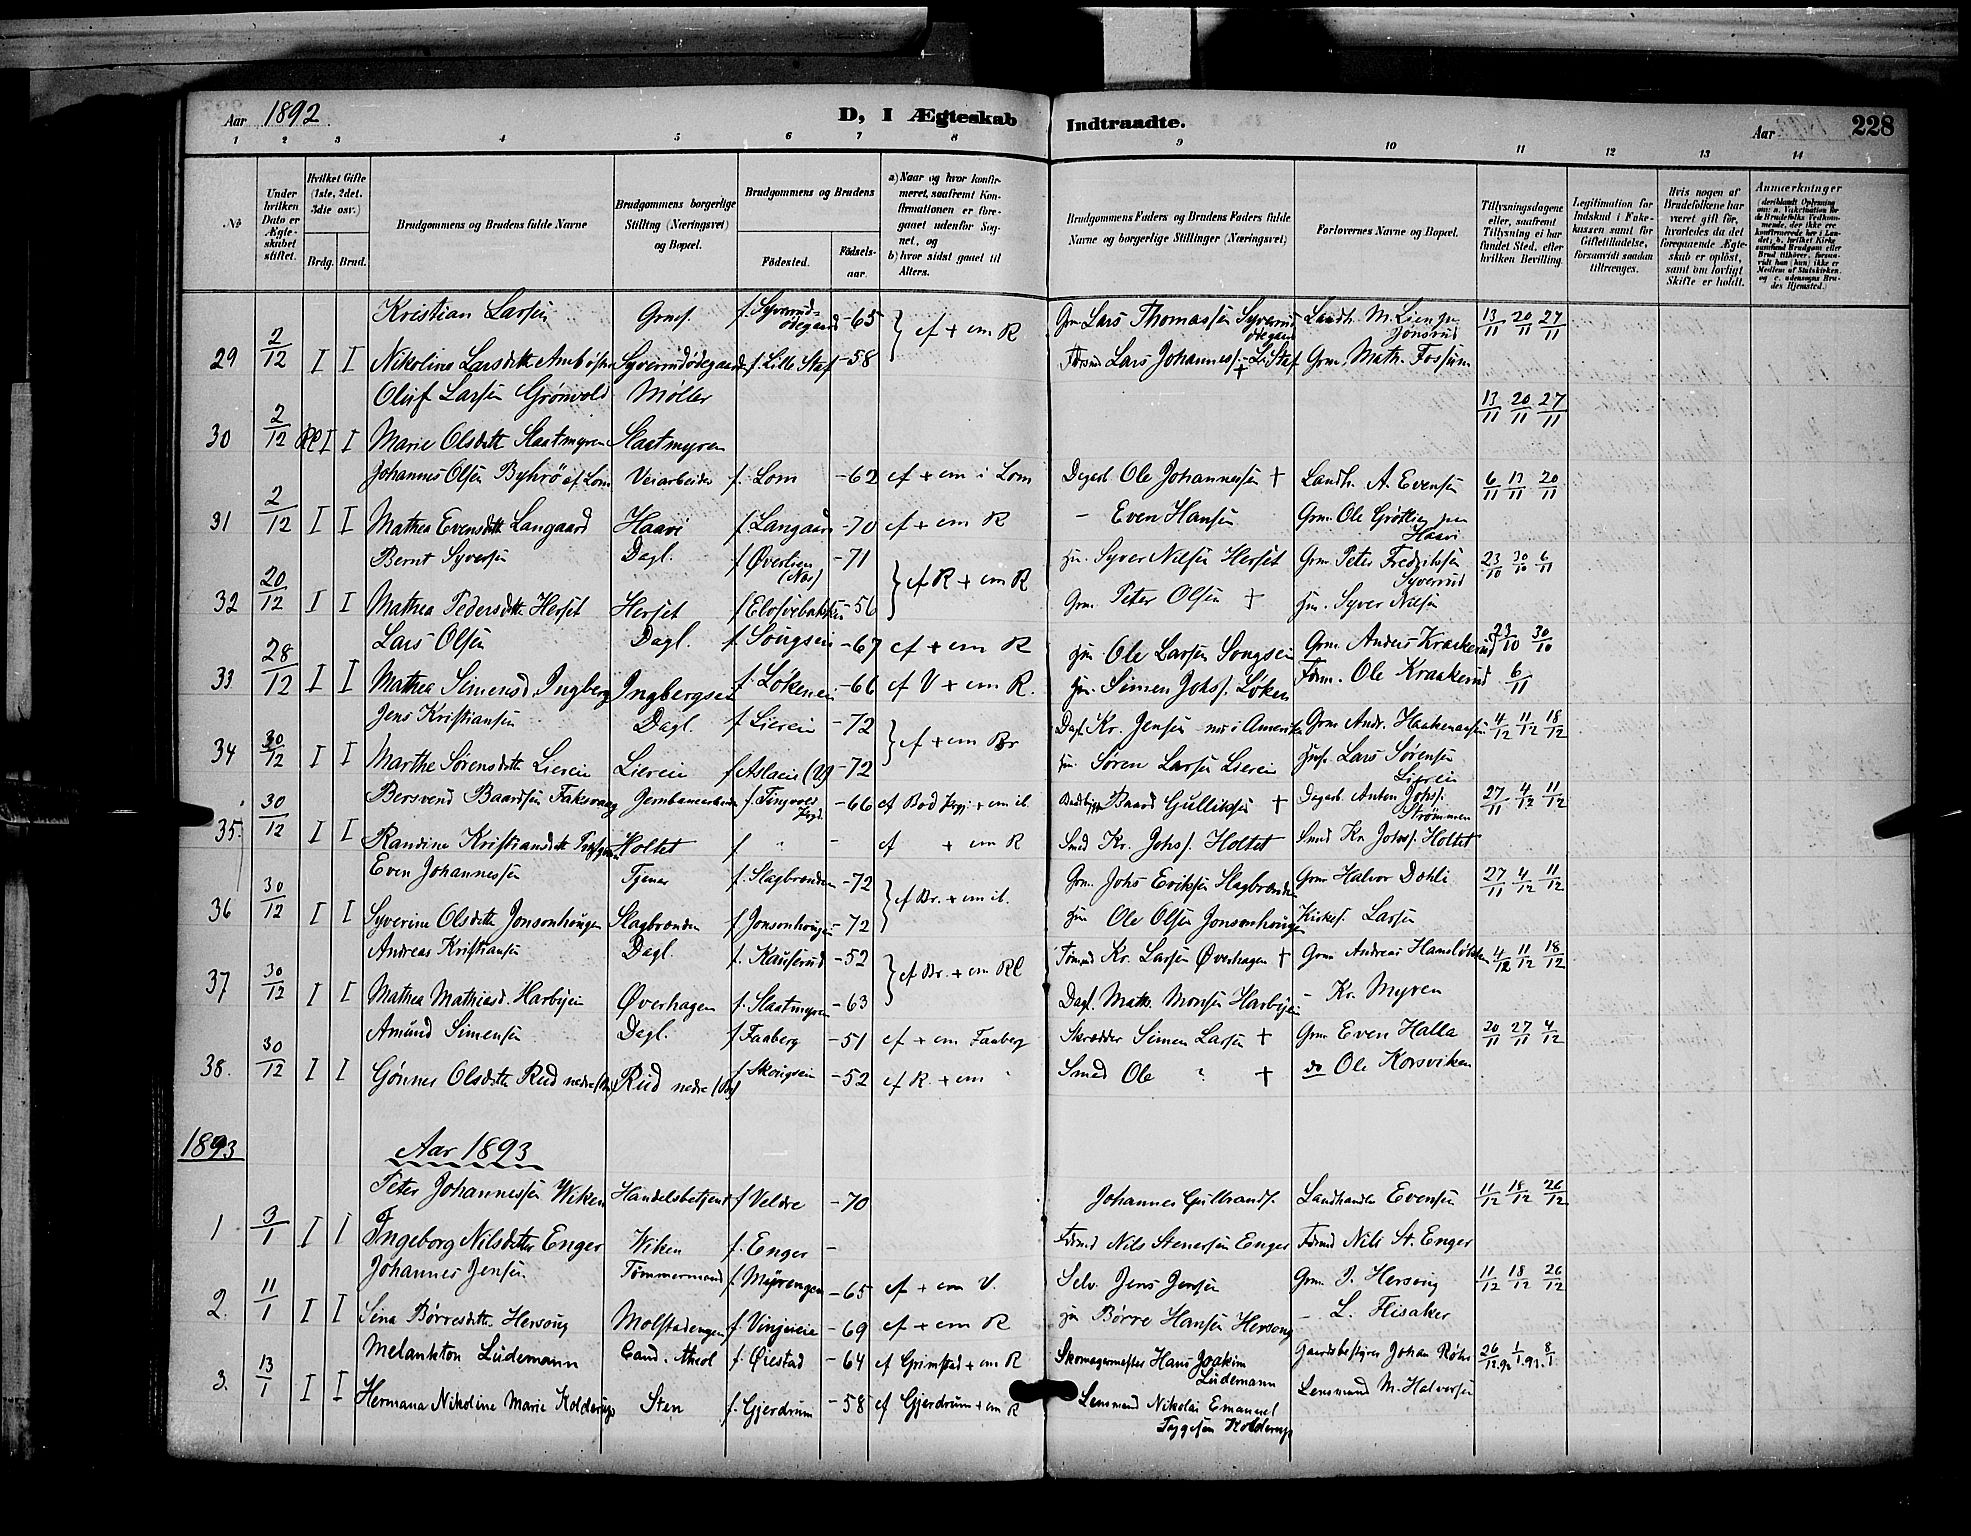 Aar 1892 D, I Ægteskab Indtraadte. Aar 228
1 2 3 4 5 6 7 8 9 10 11 12 13 14
№
Under hvilken Dato er Ægteskabet stiftet.
Hvilket Gifte (1ste, 2det, 3die osv.)
Brdg. Brud.
Brudgommens og Brudens fulde Navne
Brudgommens borgerlige Stilling (Næringsvei) og Bopæl.
Brudgommens og Brudens
Fødested.
Fødselsaar.
a) Naar og hvor konfirmeret, saafremt Konfirmationen er foregaaet udenfor Sognet, og
b) hvor sidst gaaet til Alters.
Brudgommens Faders og Brudens Faders fulde Navne og borgerlige Stillinger (Næringsvei)
Forlovernes Navne og Bopæl.
Tillysningsdagene eller, saafremt Tillysning ei har fundet Sted, efter hvilken Bevilling.
Legitimation for Indskud i Fakekassen samt for Giftetilladelse, forsaavidt saadan tiltrænges.
Hvis nogen af Brudefolkene har været gift før, hvorledes da det foregaaende Ægteskab er opløst, samt om lovligt Skifte er holdt.
Anmærkninger
Kristian Larsen Grmf. f. Syverudødegaard -65 } cf + cm R Grm Lars Thomassen Syverudødegaard Landh. M. Lien Jønsrud 13/11 20/11 27/11
29 2/12 I I Nikoline Larsdtr Syverudødegaard f. Lille Staf -58 Lars Johanness. L. Staf + Grm. Math. Fossum
Oluf Larsen Grönvold Møller 13/11 20/11 27/11
30 2/12 I I Marie Olsdtr Slaatmyren Slaatmyren
Johannes Olsen Byhrö af Lom Veiarbeider f. Lom -62 cf + cm i Lom Ole Johannessen + Landh. A. Evensen 6/11 13/11 20/11
31 2/12 I I Mathea Evensdtr Langaard Haavi f. Langaard -70 cf + cm R - Even Hansen Grm. Ole Grøtlien Haavi
Bernt Syversen Dagl. f. Øverlien (Næs) -71 } cf R + cm R Syver Nilsen Herset Grm. Peter Fredriksen Syverud 23/10 30/10 6/11
32 20/12 I I Mathea Pedersdtr. Herset Herset -56 Grm. Peter Olsen + Syver Nilsen
Lars Olsen Dagl. f. Sougsein -67 cf + cm R Ole Larsen Songsein Grm. Anders Kraakerud 23/10 30/10
33 28/12 I I Mathea Simensd Ingberg Ingbergset f. Lökenei -66 cf V + cm R. Simen Johs. Løken Ole Kraakerud 6/11
Jens Kristiansen Dagl. f Lierein -72 } cf + cm Br Dagl. Kr. Jensen nu i Amerika Grm Andr. Haakenaasen 4/12 11/12 18/12
34 30/12 I I Marthe Sörensdtr Lierein Lierein f Aslaeie (V) -72 Søren Larsen Lierein Lars Sørensen Lierein
Bersvend Baardsen Faksvaag Jernbanearbeider f. Tingvold -66 Baard Gulliksen + Dagarb. Anton Johs. Strömmen 27/11 4/12 11/12
35. 30/12 I I Randine Kristiansdtr Holtet f " - cf + cm R Smed Kr. Johs. Holtet Smed Kr. Johs. Holtet
Even Johannessen Tjener f. Slagbranden -72 } cf Br. + cm ib. Grm. Johs Eriksen Slagbranden Grm Halvor Dohli 27/11 4/12 11/12
36 30/12 I I Syverine Olsdtr Jonsonhaugen Slagbranden f Jonsonhaugen -72 Ole Olsen Jonsonhaugen Kirkes. Larsen
Andreas Kristiansen Dagl. f. Kauserud -52 } cf Br. + cm Rl Kr. Larsen Øverhagen + Grm Andreas 4/12 11/12 18/12
37 30/12 I I Mathea Mathiasd. Harbyein Øverhagen f. Slaatmyren -63 Dagl. Math. Monsen Harbyein - Kr. Myren
Amund Simensen Dagl. f Faaberg -51 cf + cm Faaberg Skrædder Simen Larsen + Grm Even Halla 20/11 27/11 4/12
38. 30/12 I I Gønner Olsdtr Rud nedre Rud nedre f Skougsein -52 cf R. + cm " Smed Ole " + do Ole Korsviken
1893 Aar 1893
Peter Johannessen Wiken Handelsbetjent f Veldre -70 Johannes Gulbrands. Landhandler Evensen 11/12 18/12 26/12
1 3/1 I I Ingeborg Nilsdatter Enger Wiken f. Enger - Nils Stenersen Enger Nils St. Enger
Johannes Jensen Tømmermand f Myrengen -65 cf + cm V. Selv. Jens Jensen Grm. P. Hersoug 11/12 18/12 26/12
2. 11/1 I I Sina Børresdtr. Hersoug Molstadengen f. Vinjueie -69 cf + cm R Børre Hansen Hersoug - L. Flisaker
Melankton Lüdemann Cand. theol f. Ørestad -64 cf Grimstad + cm R Skomagermester Hans Joakim Lüdemann Gaardsbestyrer Johan Røhr 26/12.92 1/1.93. 8/1
3. 13/1 I I Hermana Nikoline Marie Kolderup Sten f. Gjerdrum -58 cf Gjerdrum + cm R Lensmand Nikolai Emanuel Tygesen Kolderup Lensmand M. Halvorsen